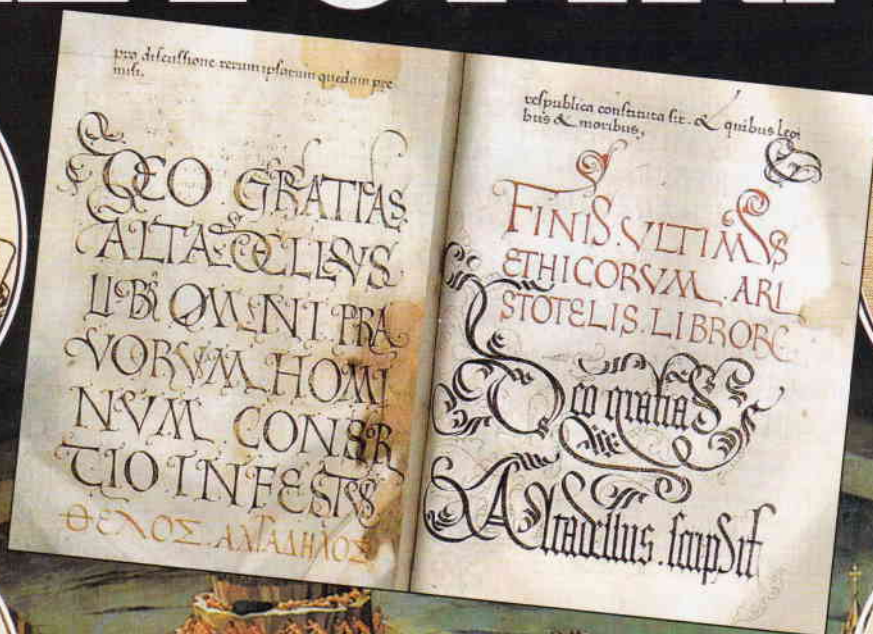 pro discussione rerum ipsarum quedam pre
misi.
DEO GRATIAS
ALTADELLVS
OMNI PRA
VORVM HOMI
NVM CONSR
TIO INFESTVS
ΘΕΛΟΣ ΑΛΤΑΔΗΛΟΣ
respublica constituta sit. & quibus legi
bus & moribus,
FINIS.VLTIMVS
ETHICORVM.ARI
STOTELIS.LIBRORV
Deo gratias
Altadellus.scripsit